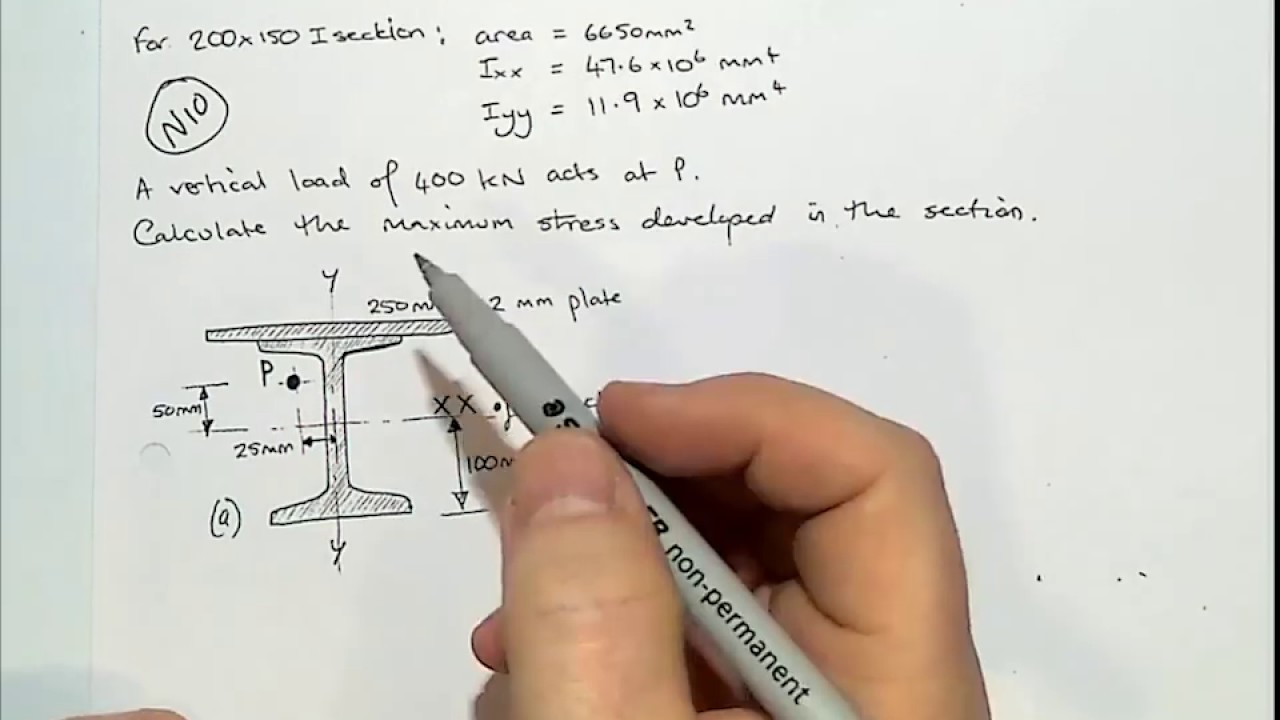 for 200x150 I section; area = 6650mm²
Ixx = 47.6 x 10⁶ mm⁴
N10
Iyy = 11.9 x 10⁶ mm⁴
A vertical load of 400 kN acts at P.
Calculate the maximum stress developed in the section.
Y
2 mm plate
P
50mm
XX
25mm
(a)
Y
non-permanent